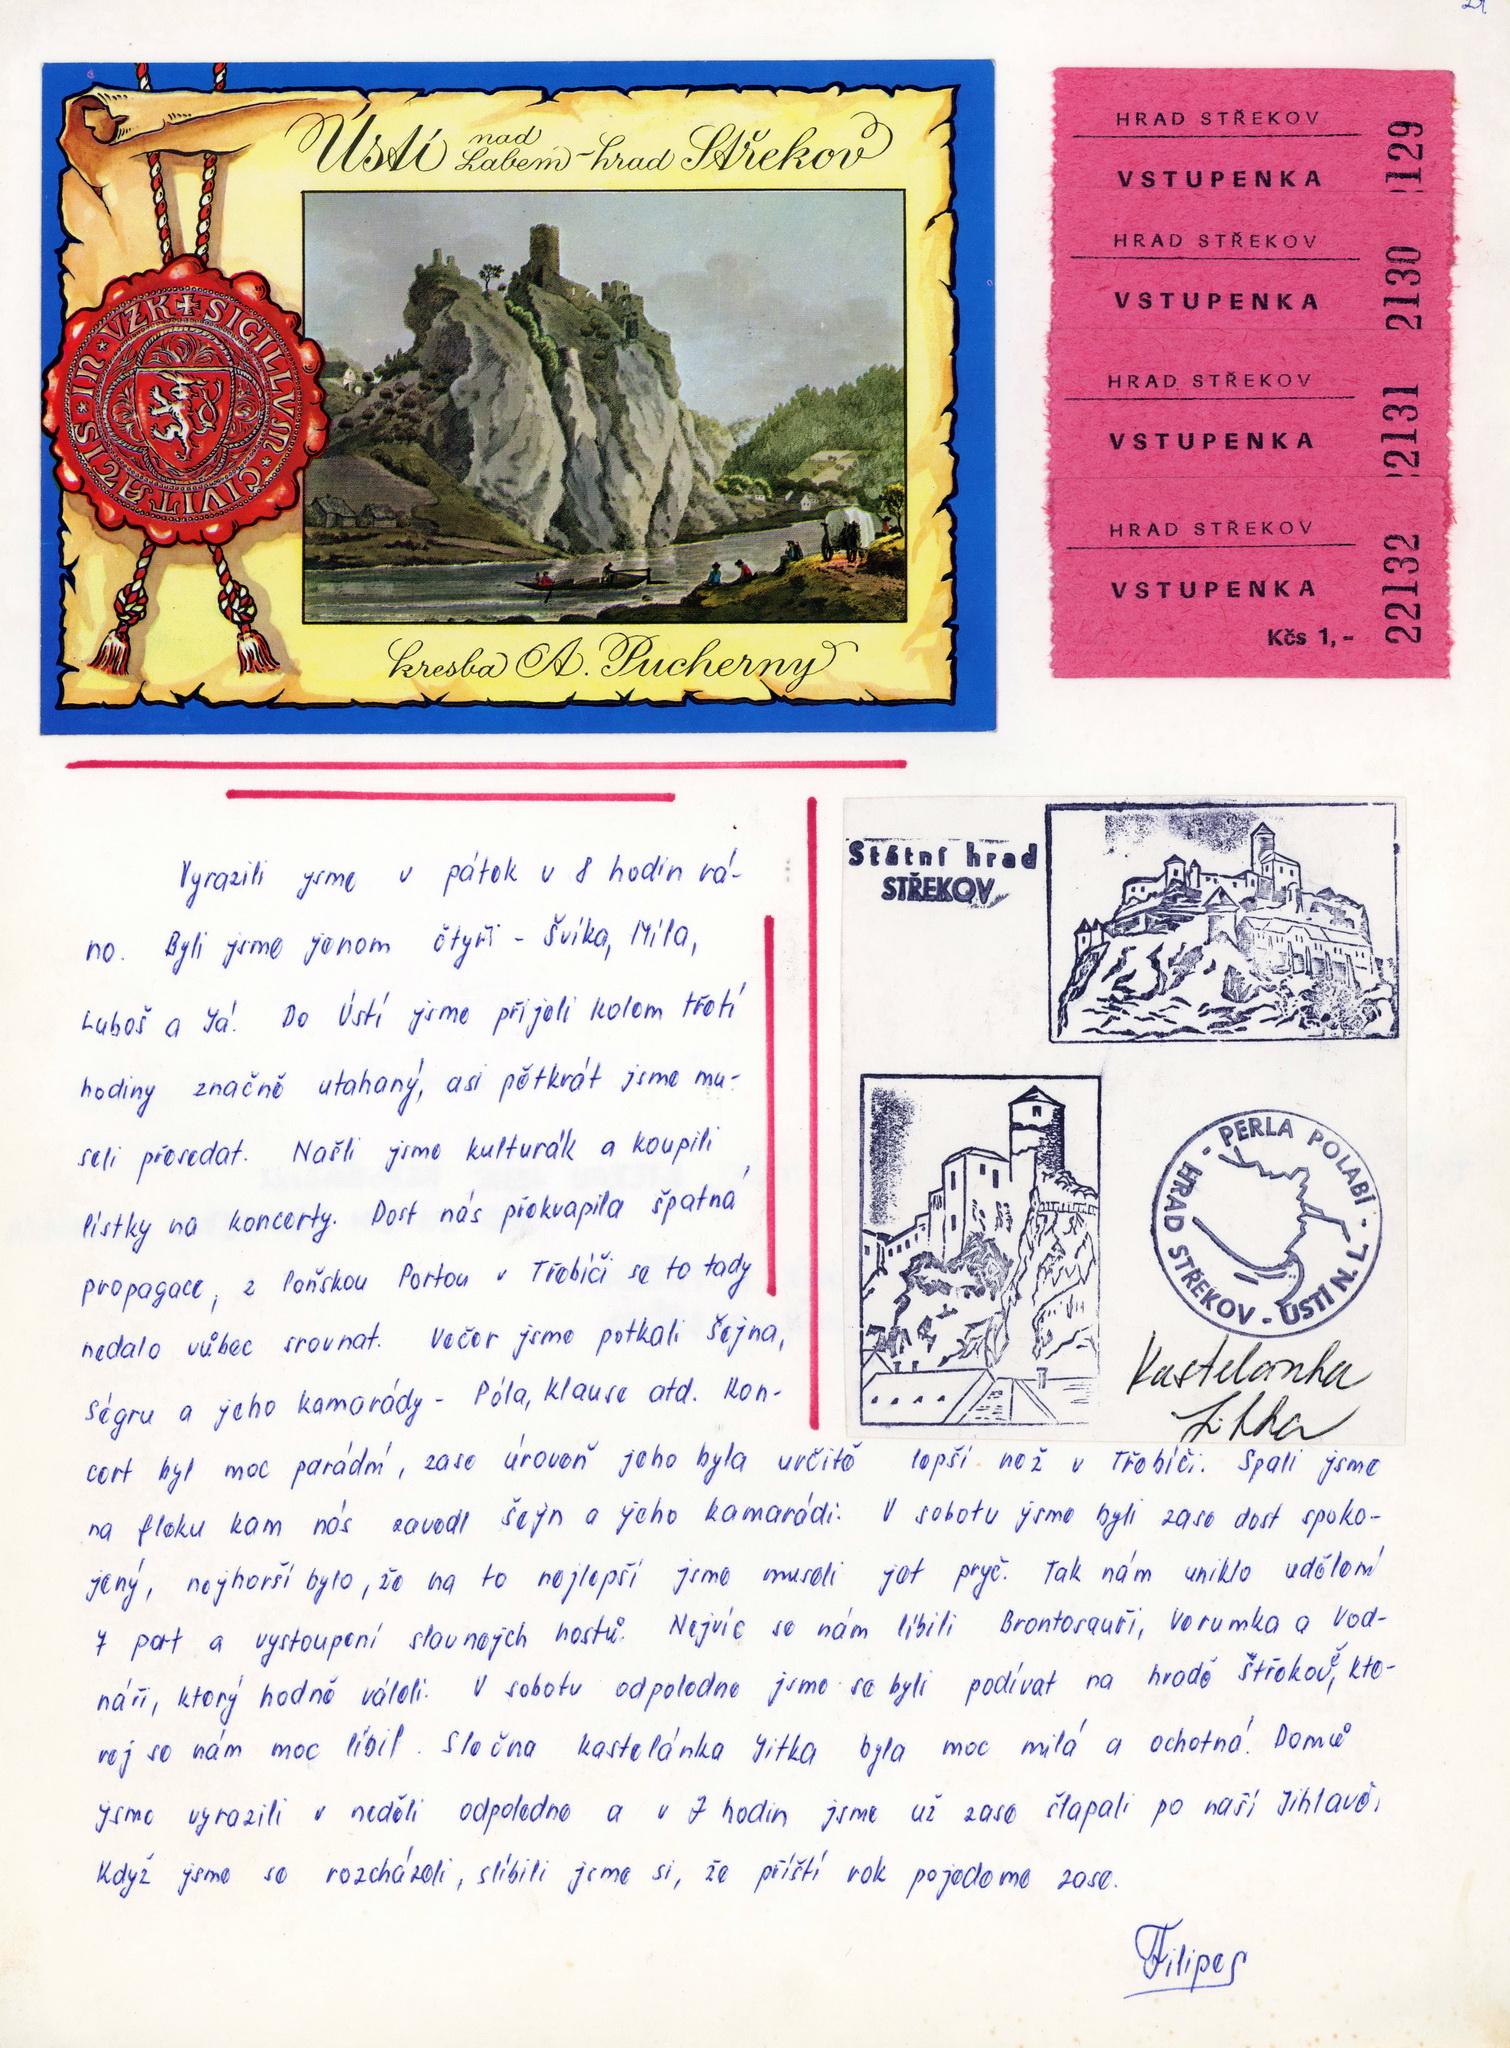 Ústí nad Labem - hrad Střekov
SIGILLVM · CIVITATIS · IN · VZK
kresba A. Pucherny
HRAD STŘEKOV
VSTUPENKA
129
HRAD STŘEKOV
VSTUPENKA
2130
HRAD STŘEKOV
VSTUPENKA
2131
HRAD STŘEKOV
VSTUPENKA
22132
Kčs 1,-
Státní hrad
STŘEKOV
· PERLA POLABÍ · HRAD STŘEKOV - ÚSTÍ N. L
Kastelánka
Jitka
Vyrazili jsme v pátek v 8 hodin rá-
no. Byli jsme jenom čtyři - Švika, Míla,
Luboš a Já. Do Ústí jsme přijeli kolem třetí
hodiny značně utahaný, asi pětkrát jsme mu-
seli přesedat. Našli jsme kulturák a koupili
lístky na koncerty. Dost nás překvapila špatná
propagace, z loňskou Portou v Třebíči se to tady
nedalo vůbec srovnat. Večer jsme potkali Šejna,
Ségru a jeho kamarády - Póla, Klause atd. Kon-
cert byl moc parádní, zase úroveň jeho byla určitě lepší než v Třebíči. Spali jsme
na fleku kam nás zavedl Šejn a jeho kamarádi. V sobotu jsme byli zase dost spoko-
jený, nejhorší bylo, že na to nejlepší jsme museli jet pryč. Tak nám uniklo udělení
7 port a vystoupení slavnejch hostů. Nejvíc se nám líbili Brontosauři, Verumka a Vod-
náři, který hodně váleli. V sobotu odpoledne jsme se byli podívat na hradě Střekově, kte-
rej se nám moc líbil. Slečna kastelánka Jitka byla moc milá a ochotná. Domů
jsme vyrazili v neděli odpoledne a v 7 hodin jsme už zase šlapali po naší Jihlavě.
Když jsme se rozcházeli, slíbili jsme si, že příští rok pojedeme zase.
Filipes